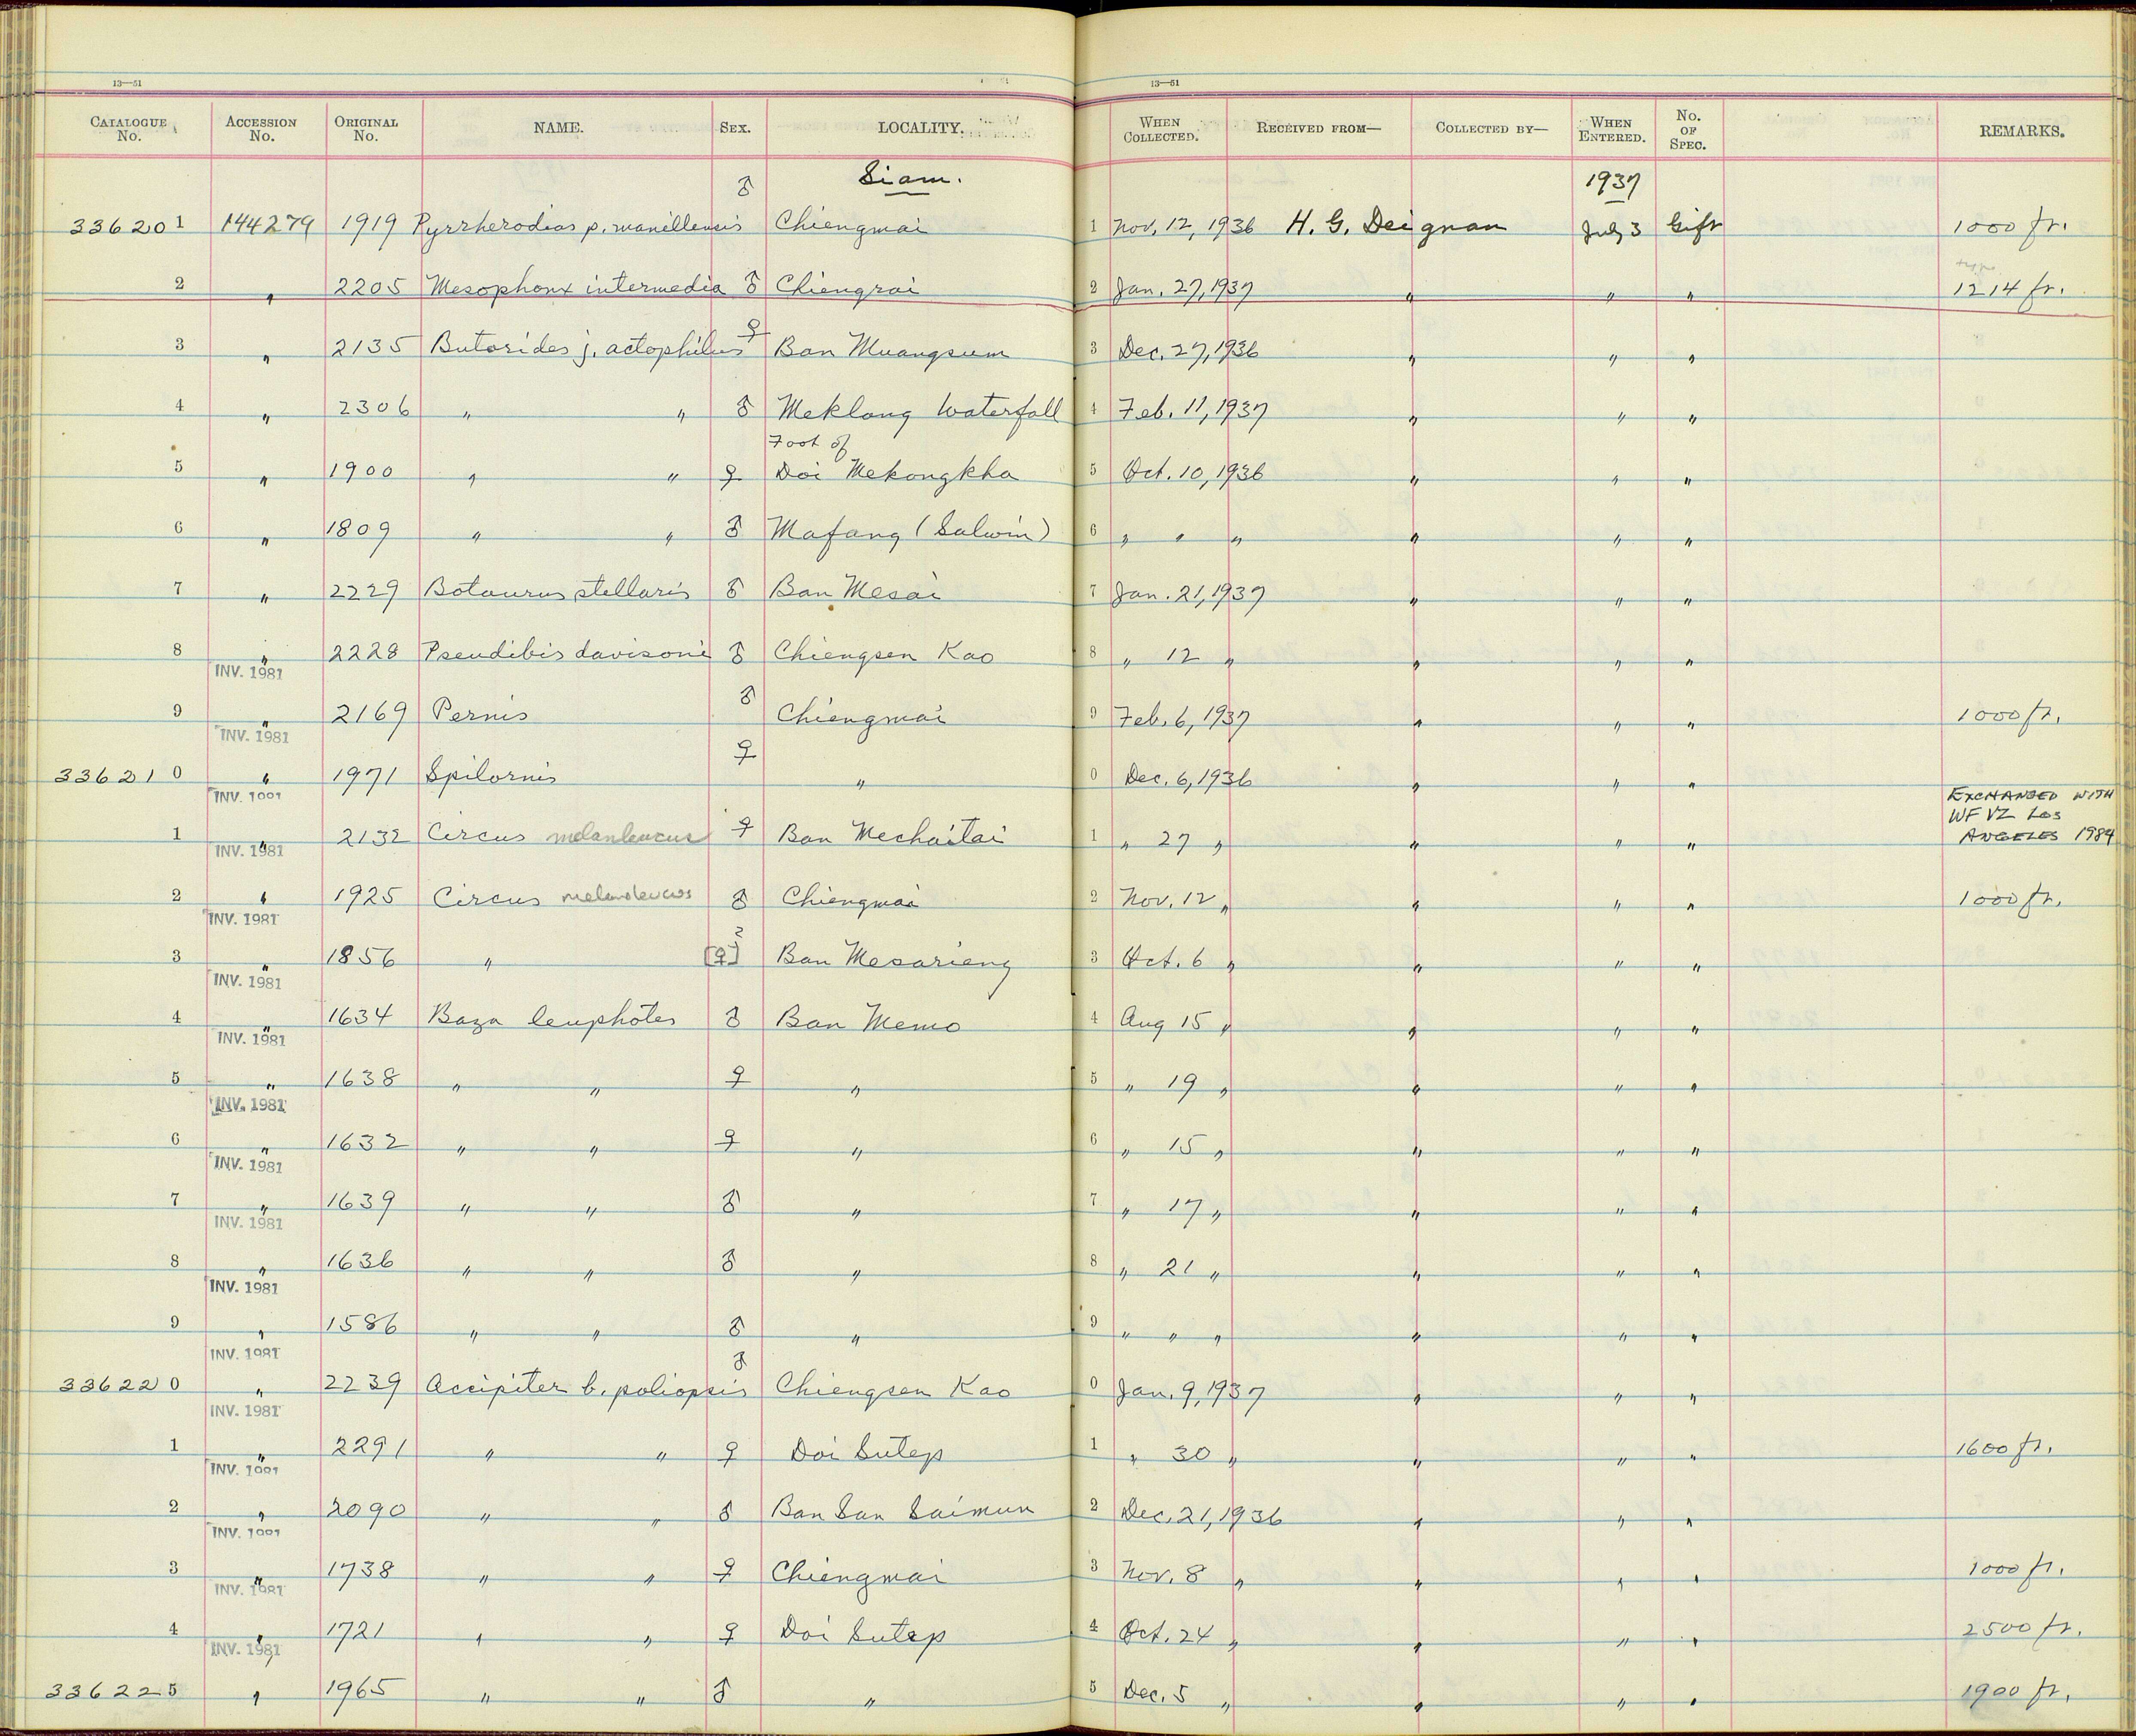 13—51 13—51
CATALOGUE No. ACCESSION No. ORIGINAL No. NAME. SEX. LOCALITY. WHEN COLLECTED. RECEIVED FROM— COLLECTED BY— WHEN ENTERED. No. OF SPEC. REMARKS.
Siam. 1937
336201 144279 1919 Pyrrherodias p. manillensis ♂ Chiengmai 1 Nov. 12, 1936 H. G. Deignan July 3 Gift 1000 ft.
2 " 2205 Mesophoyx intermedia ♂ Chiengrai 2 Jan. 27, 1937 " " " 1214 ft.
3 " 2135 Butorides j. actophilus ♀ Ban Muangsum 3 Dec. 27, 1936 " " "
4 " 2306 " " ♂ Meklang Waterfall 4 Feb. 11, 1937 " " "
Foot of
5 " 1900 " " ♀ Doi Mekongkha 5 Oct. 10, 1936 " " "
6 " 1809 " " ♂ Mafang (Salwin) 6 " " " " " "
7 " 2229 Botaurus stellaris ♂ Ban Mesai 7 Jan. 21, 1937 " " "
8 " 2228 Pseudibis davisoni ♂ Chiengsen Kao 8 " 12 " " " "
INV. 1981
9 " 2169 Pernis ♂ Chiengmai 9 Feb. 6, 1937 " " " 1000 ft.
INV. 1981
336210 " 1971 Spilornis ♀ " 0 Dec. 6, 1936 " " "
INV. 1981
EXCHANGED WITH
WFVZ LOS
1 " 2132 Circus melanleucus ♀ Ban Mechaitai 1 " 27 " " " " ANGELES 1984
INV. 1981
2 " 1925 Circus melanoleucos ♂ Chiengmai 2 Nov. 12 " " " " 1000 ft.
INV. 1981
3 " 1856 " [♀]? Ban Mesarieng 3 Oct. 6 " " " "
INV. 1981
4 " 1634 Baza leuphotes ♂ Ban Memo 4 Aug 15 " " " "
INV. 1981
5 " 1638 " " ♀ " 5 " 19 " " " "
INV. 1981
6 " 1632 " " ♀ " 6 " 15 " " " "
INV. 1981
7 " 1639 " " ♂ " 7 " 17 " " " "
INV. 1981
8 " 1636 " " ♂ " 8 " 21 " " " "
INV. 1981
9 " 1586 " " ♂ " 9 " " " " " "
INV. 1981
336220 " 2239 Accipiter b. poliopsis ♂ Chiengsen Kao 0 Jan. 9, 1937 " " "
INV. 1981
1 " 2291 " " ♀ Doi Sutep 1 " 30 " " " " 1600 ft.
INV. 1981
2 " 2090 " " ♂ Ban San Saimun 2 Dec. 21, 1936 " " "
INV. 1981
3 " 1738 " " ♀ Chiengmai 3 Nov. 8 " " " " 1000 ft.
INV. 1981
4 " 1721 " " ♀ Doi Sutep 4 Oct. 24 " " " " 2500 ft.
INV. 1981
336225 " 1965 " " ♂ " 5 Dec. 5 " " " " 1900 ft.